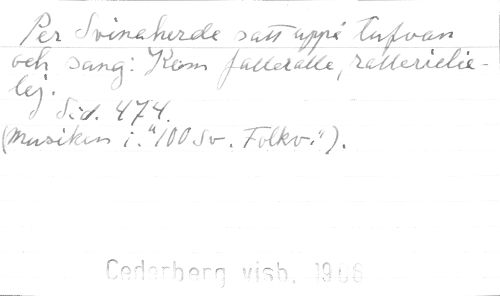 Per Svinaherde satt uppå tufvan
och sang: Kom falleralle, rallerielie-
lej.
Sid. 474.
(Musiken i "100 Sv. Folkv.").
Cederberg visb. 1906